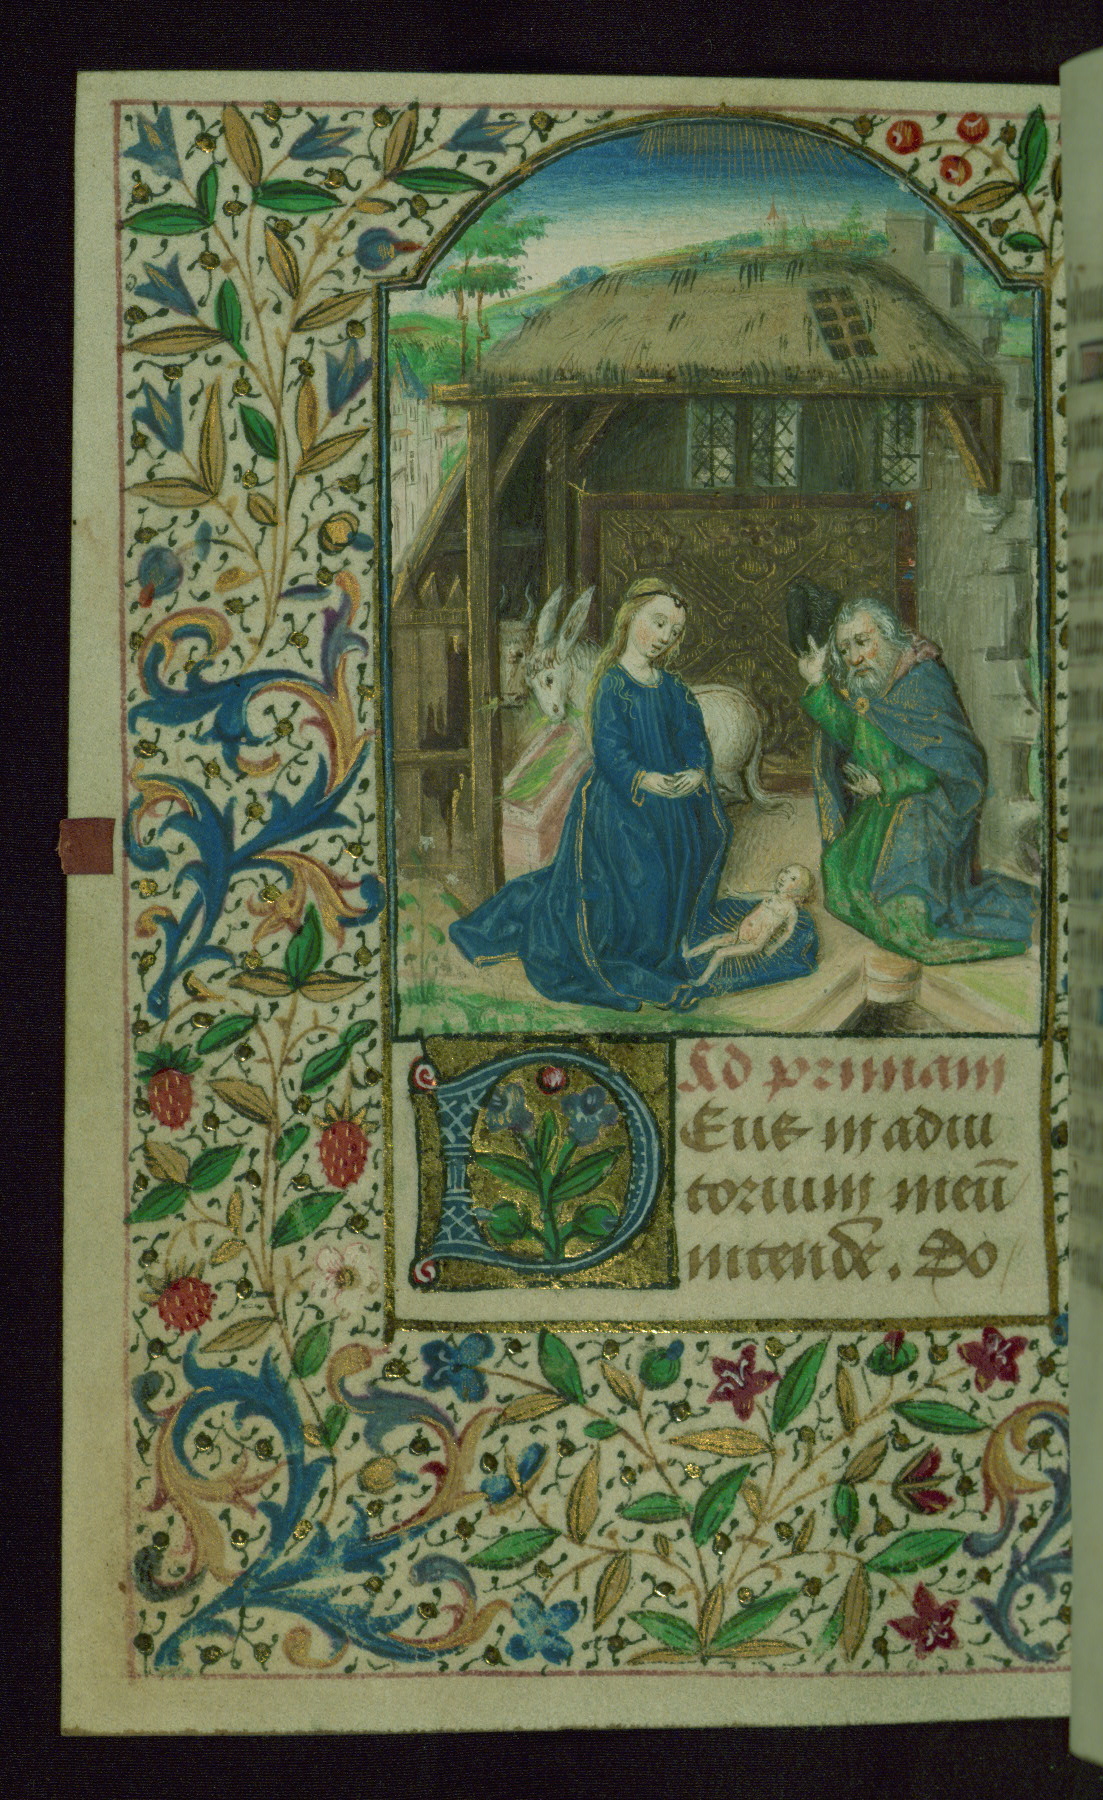 Ad primam
Deus in adiu
torium meū
intende. Do